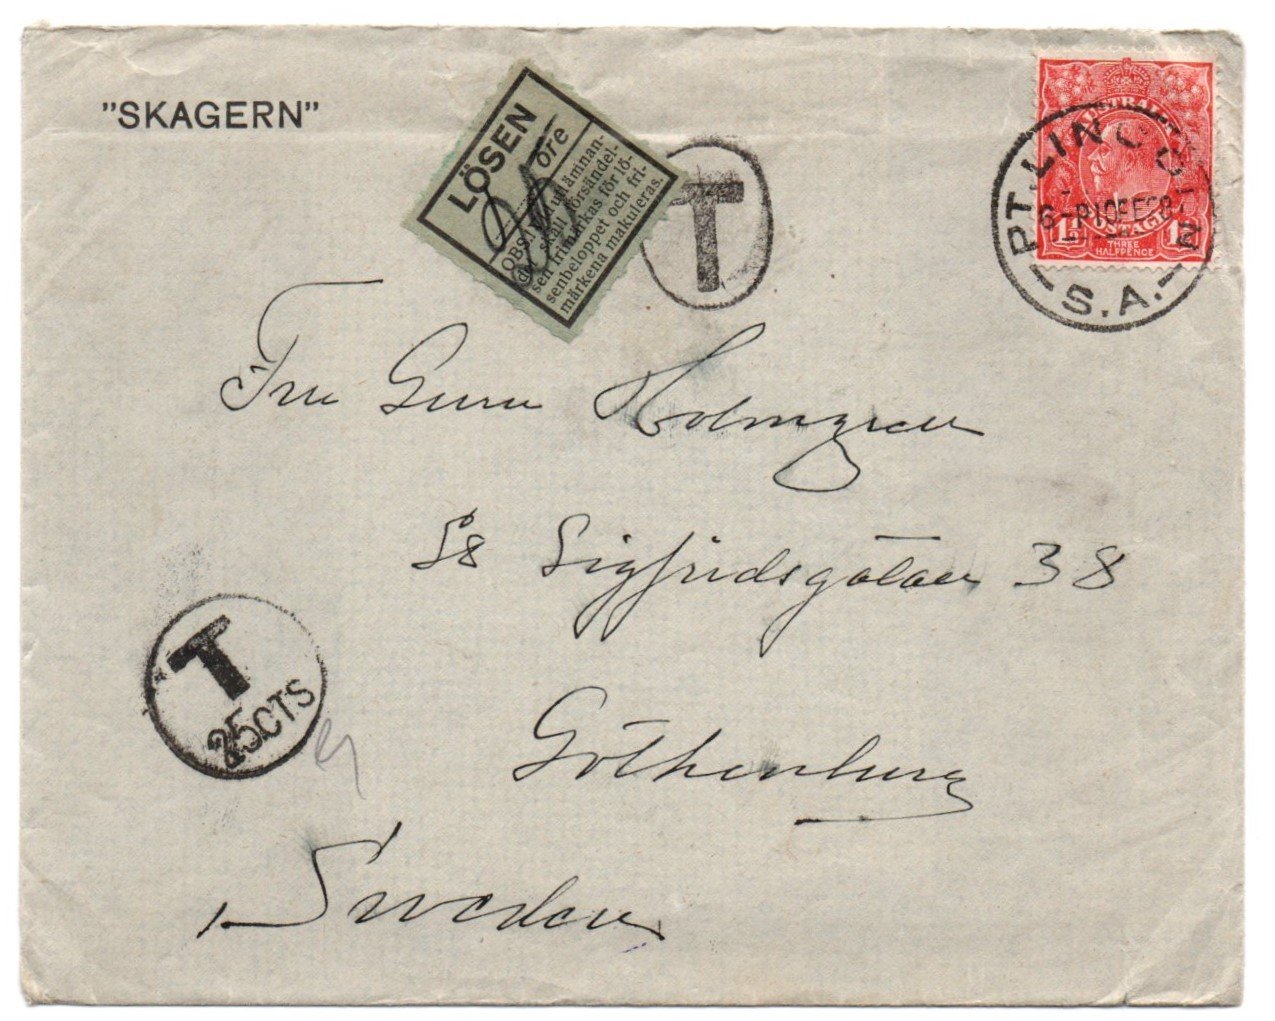 "SKAGERN"
LÖSEN
öre
OBS.! Vid utlämnan-
det skall försändel-
sen frimärkas för lö-
senbeloppet och fri-
märkena makuleras.
T
PT. LINCOLN
S.A.
AUSTRALIA
POSTAGE
THREE
HALFPENCE
Fru Gurn Holmgren
S8 Sigfridsgatan 38
Gothenburg
T
25CTS
Sweden